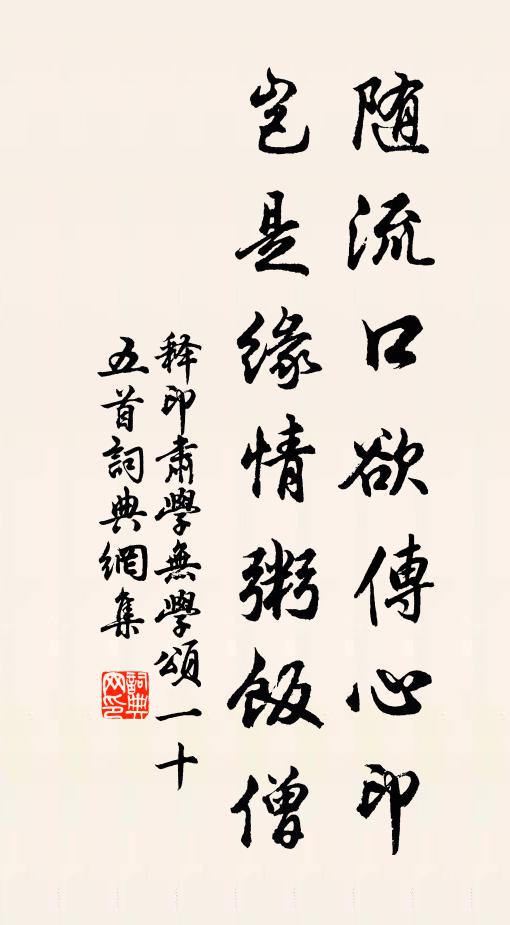 随流口欲傳心印
豈是緣情粥飯僧
释印肃學無學頌一十
五首詞典網集
詞典網印